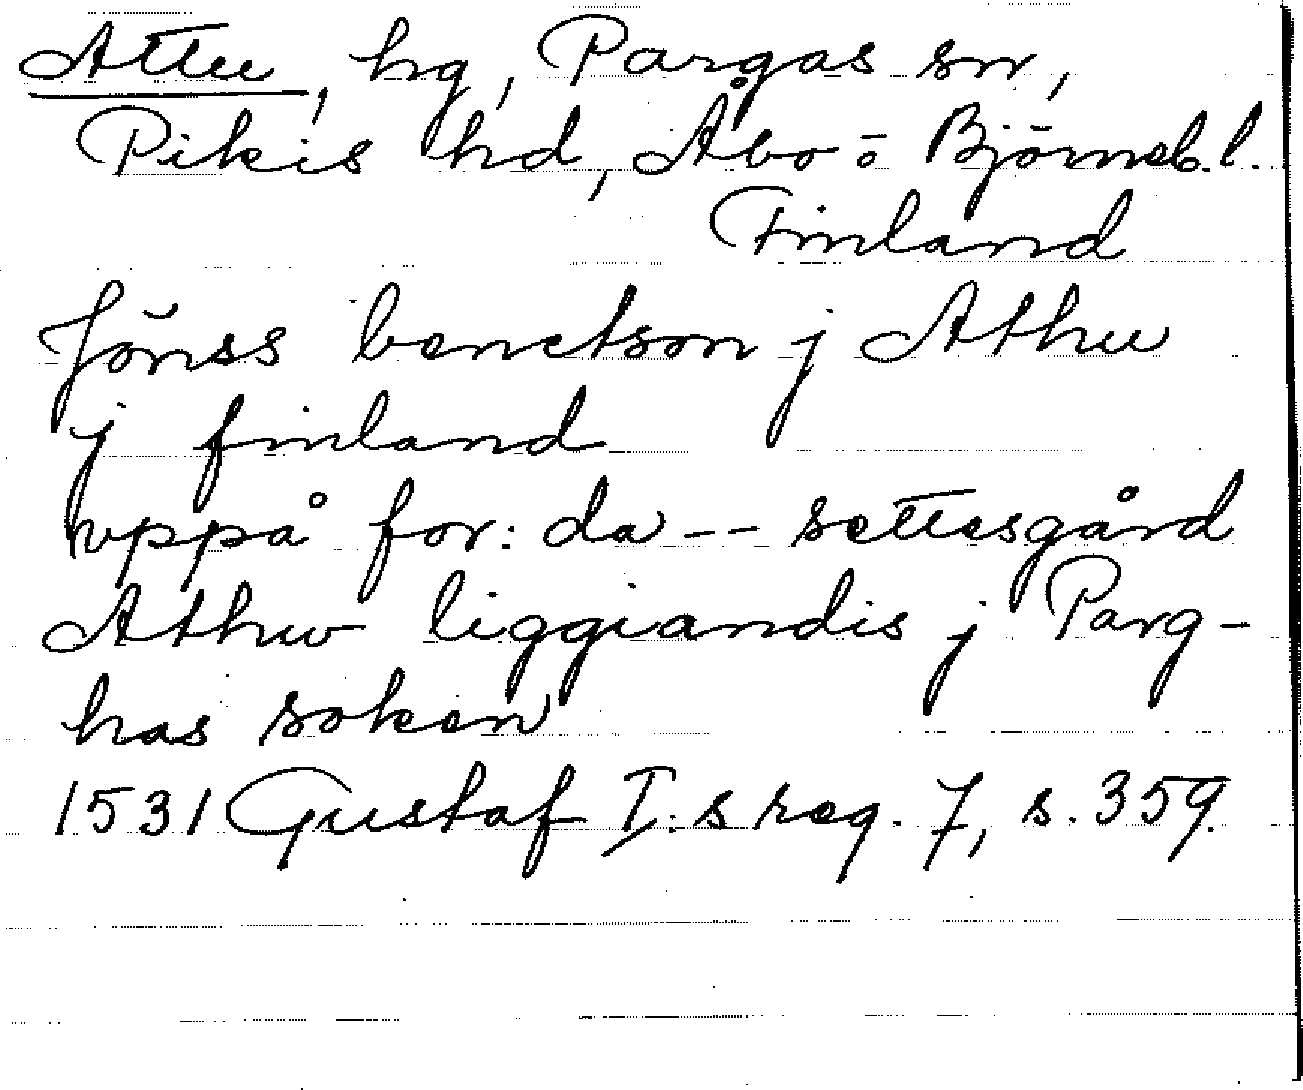 Attu, hg, Pargas sn,
Pikis hd, Åbo- o Björneb. l.
Finland
Jönss benctson j Athu
j finland
vppå for: da -- settesgård
Athw liggiandis j Parg-
has soken
1531 Gustaf I:s reg. 7, s. 359.